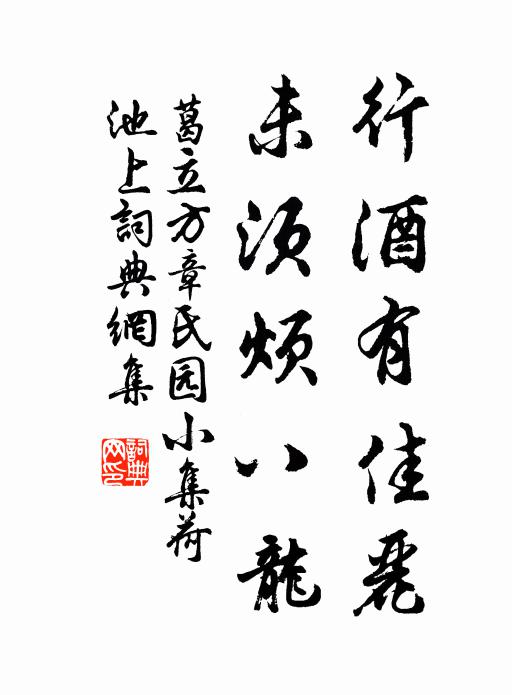 行酒有佳麗
未須煩八龍
葛立方章氏园小集荷
池上詞典網集
詞典网印